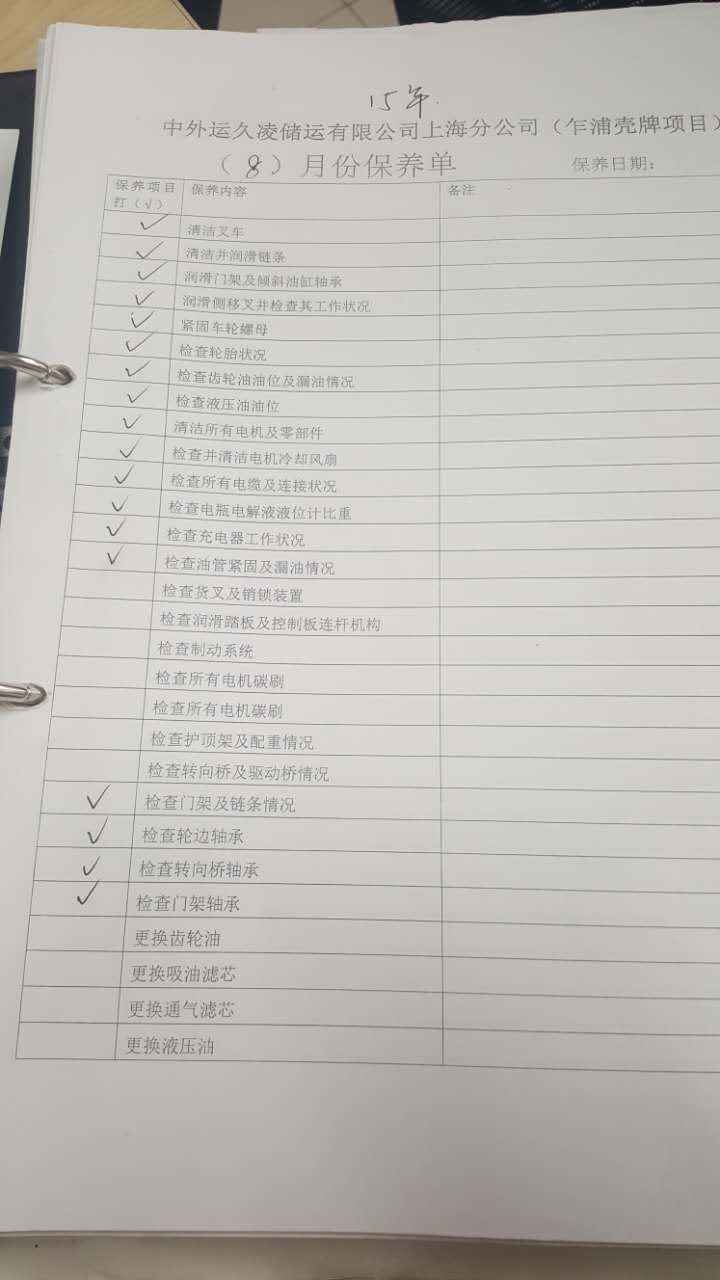 15年.
中外运久凌储运有限公司上海分公司（乍浦壳牌项目）
（8）月份保养单 保养日期：
保养项目 保养内容 备注
打（√）
✓ 清洁叉车
✓ 清洁并润滑链条
✓ 润滑门架及倾斜油缸轴承
✓ 润滑侧移叉并检查其工作状况
✓ 紧固车轮螺母
✓ 检查轮胎状况
✓ 检查齿轮油油位及漏油情况
✓ 检查液压油油位
✓ 清洁所有电机及零部件
✓ 检查并清洁电机冷却风扇
✓ 检查所有电缆及连接状况
✓ 检查电瓶电解液液位计比重
✓ 检查充电器工作状况
✓ 检查油管紧固及漏油情况
检查货叉及销锁装置
检查润滑踏板及控制板连杆机构
检查制动系统
检查所有电机碳刷
检查所有电机碳刷
检查护顶架及配重情况
检查转向桥及驱动桥情况
✓ 检查门架及链条情况
✓ 检查轮边轴承
✓ 检查转向桥轴承
✓ 检查门架轴承
更换齿轮油
更换吸油滤芯
更换通气滤芯
更换液压油